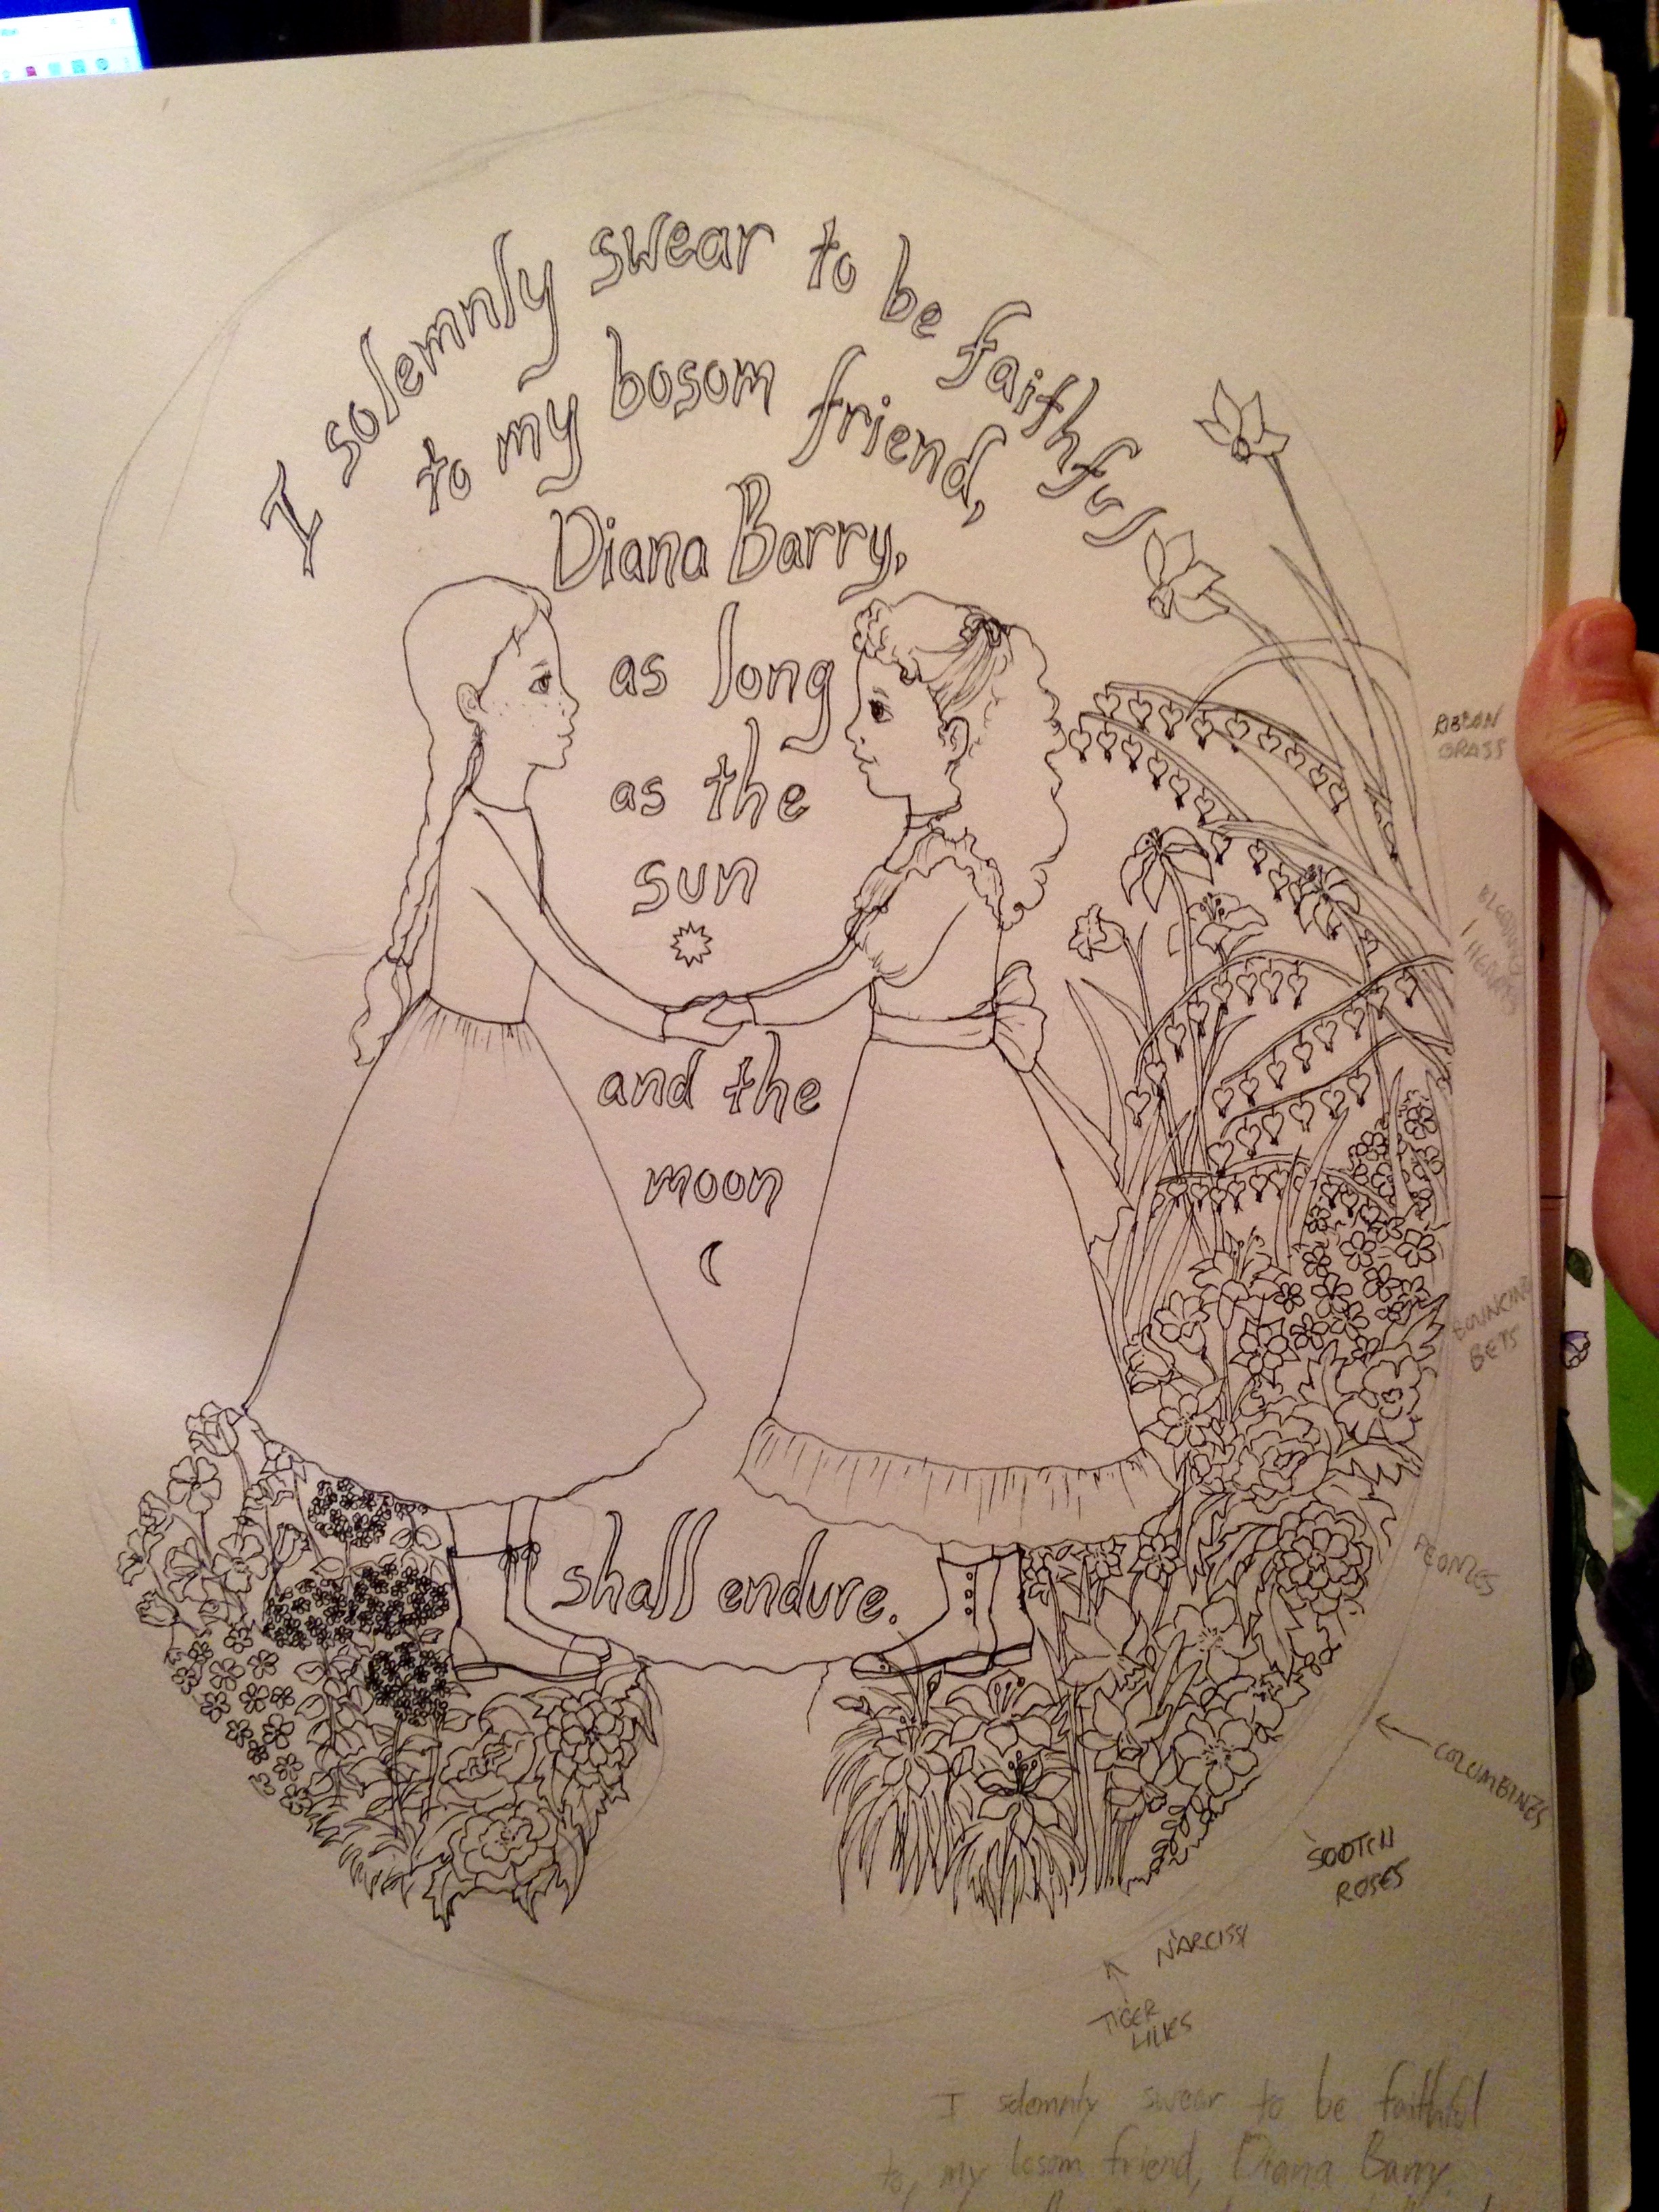 I solemnly swear to be faithful
to my bosom friend,
Diana Barry,
as long
as the
sun
and the
moon
shall endure.
RIBBON
GRASS
BLEEDING
HEARTS
BOUNCING
BETS
PEONIES
COLUMBINES
SCOTCH
ROSES
NARCISSI
TIGER
LILIES
I solemnly swear to be faithful
to, my bosom friend, Diana Barry